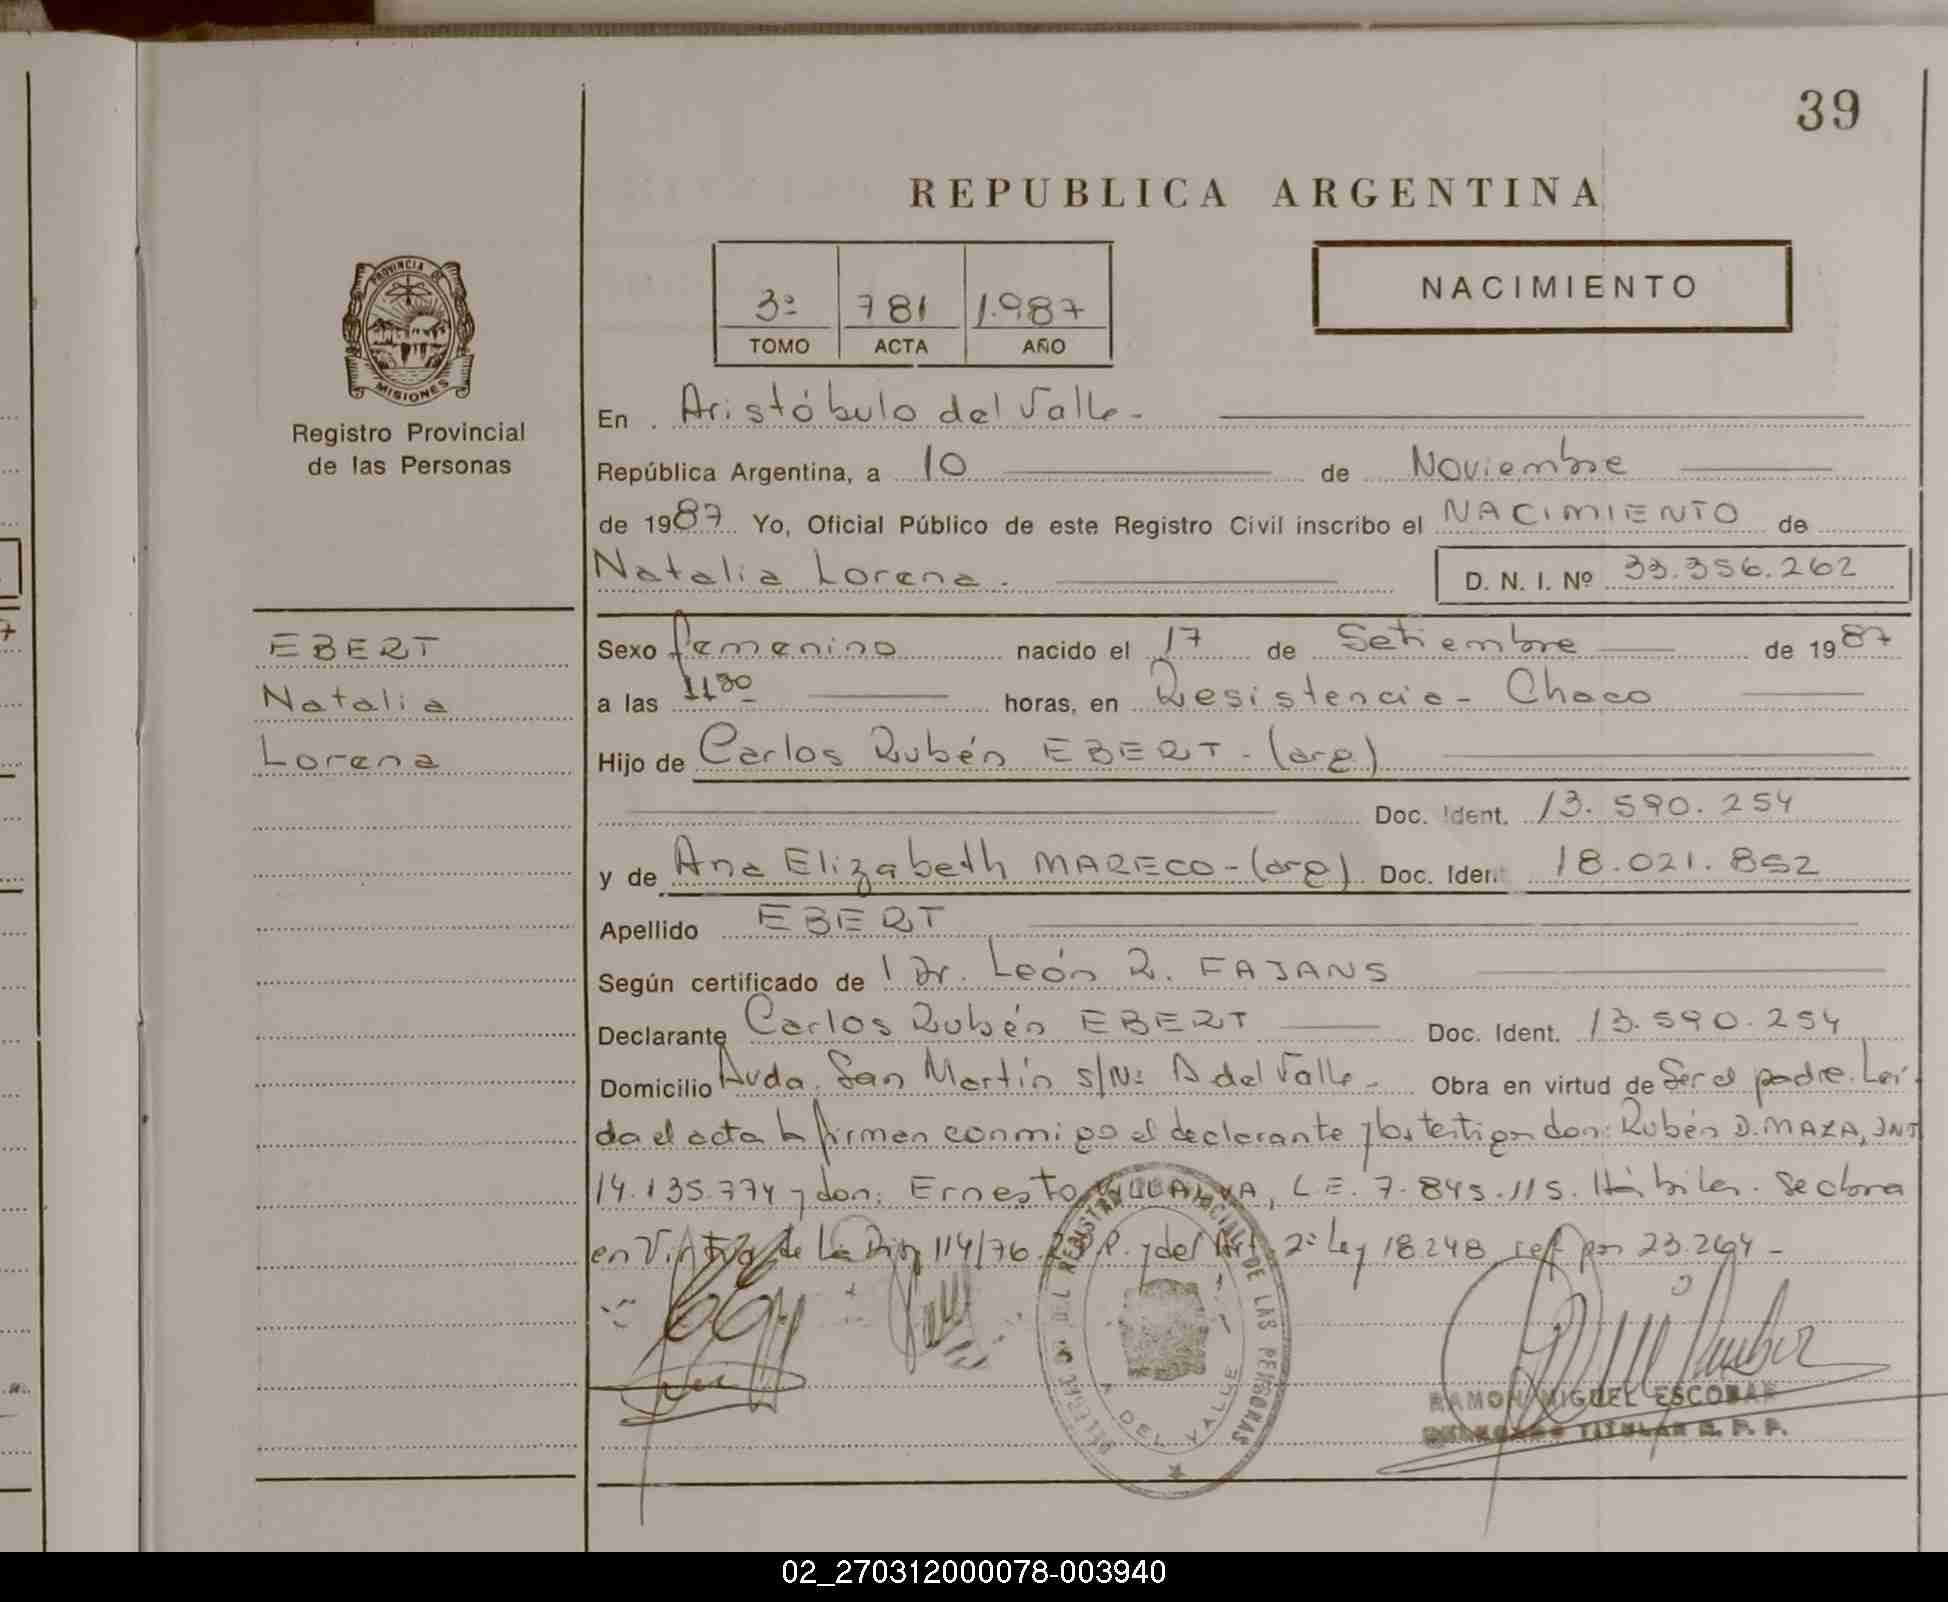 39
REPUBLICA ARGENTINA
PROVINCIA DE
MISIONES
Registro Provincial
de las Personas
3º 781 1.987
TOMO ACTA AÑO
NACIMIENTO
En Aristóbulo del Valle-
República Argentina, a 10 de Noviembre
de 1987 Yo, Oficial Público de este Registro Civil inscribo el NACIMIENTO de
Natalia Lorena. D. N. I. Nº 33.356.262
EBERT
Natalia
Lorena
Sexo femenino nacido el 17 de Setiembre de 1987
a las 1130 horas, en Resistencia - Chaco
Hijo de Carlos Rubén EBERT - (arg)
Doc. Ident. 13.590.254
y de Ana Elizabeth MARECO - (arg) Doc. Ident 18.021.852
Apellido EBERT
Según certificado de l Dr. León R. FAJANS
Declarante Carlos Rubén EBERT Doc. Ident. 13.590.254
Domicilio Avda. San Martín s/Nº A del Valle - Obra en virtud de Ser el padre. Leí-
da el acta la firman conmigo el declarante y los testigos don: Rubén D. MAZA, DNI
14.135.774 y don: Ernesto VILLALVA, L.E. 7.845.115. Hábiles. Se obra
en Virtud de La 114/76. R.P.P. y del Art. 2º Ley 18248 ref por 23.264 -
DEL REGISTRO PROVINCIAL DE LAS PERSONAS
A DEL VALLE
RAMON MIGUEL ESCOBAR
DELEGADO TITULAR R. P. P.
02_270312000078-003940